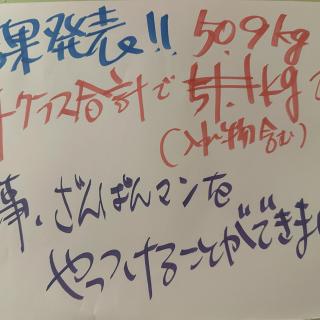 果発表!! 50.9kg
ケース合計で 51.1kgで
(入れ物含む)
事、ざんぱんマンを
やっつけることができま